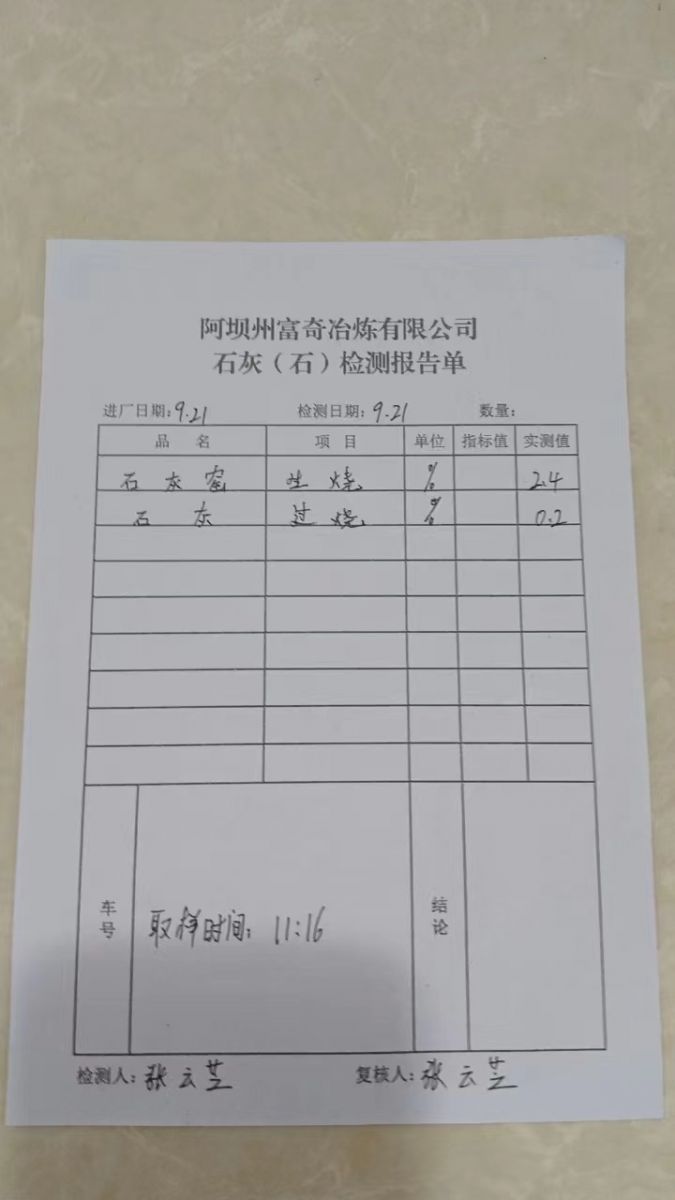 阿坝州富奇冶炼有限公司
石灰（石）检测报告单
进厂日期：9.21 检测日期：9.21 数量：
品 名 项 目 单位 指标值 实测值
石 灰 窑 生 烧 % 2.4
石 灰 过 烧 % 0.2
车号 取样时间：11:16 结论
检测人：张云芝 复核人：张云芝